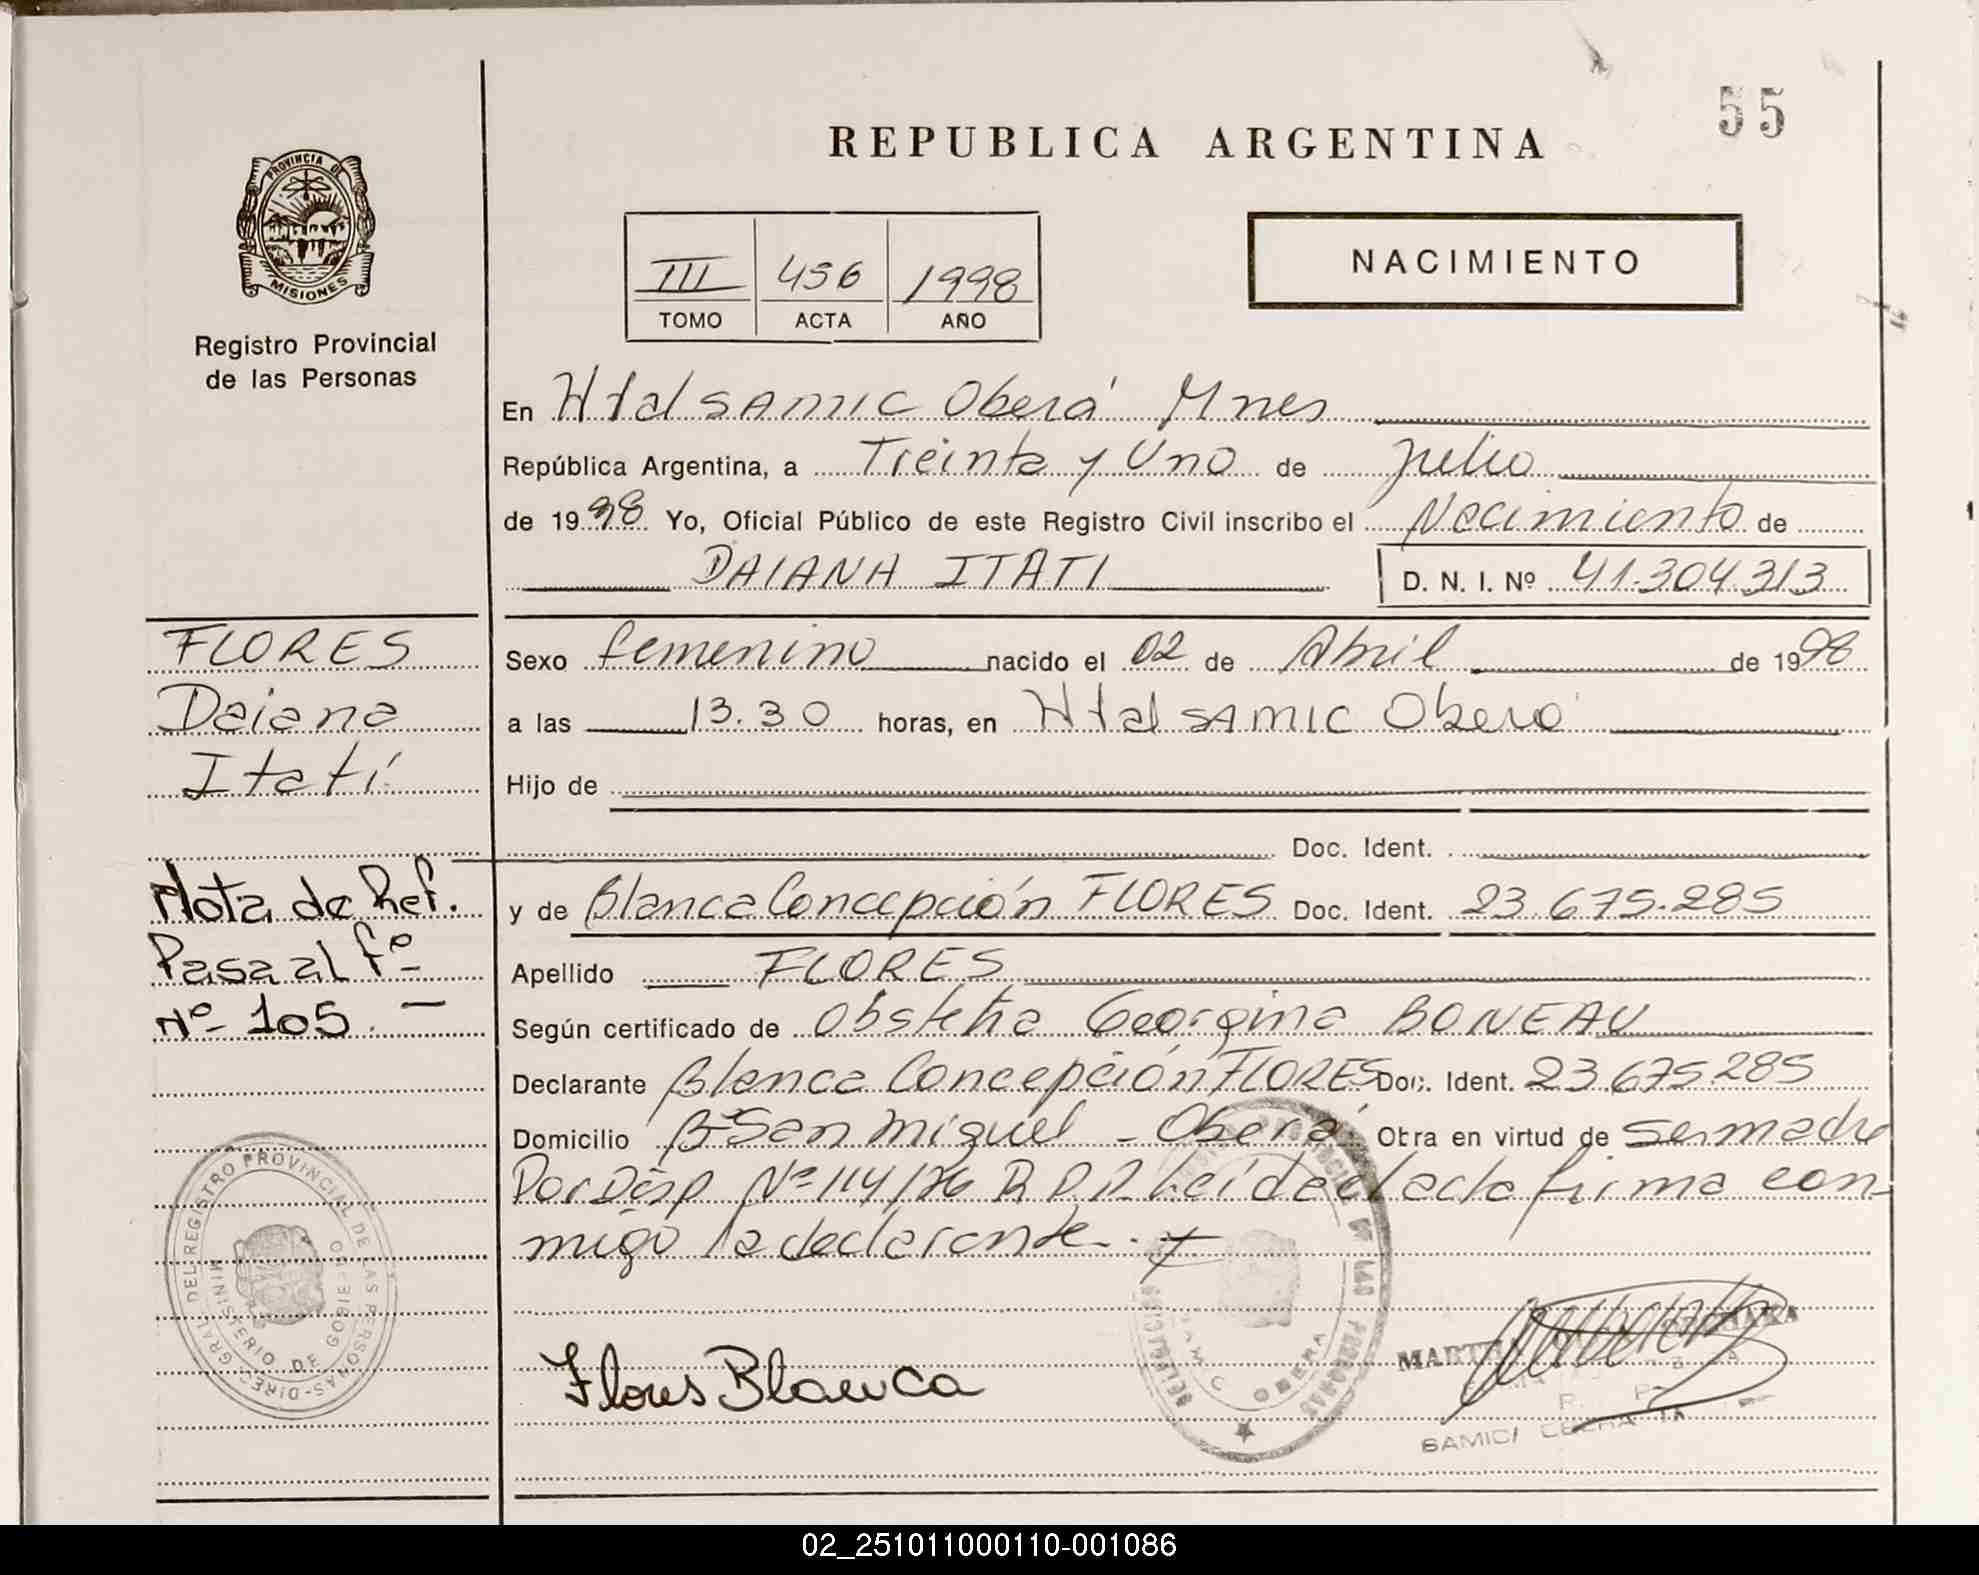 55
REPUBLICA ARGENTINA
PROVINCIA DE
MISIONES
Registro Provincial
de las Personas
III 456 1998
TOMO ACTA AÑO
NACIMIENTO
En Htal SAMIC Oberá Mnes
República Argentina, a Treinta y Uno de Julio
de 1998 Yo, Oficial Público de este Registro Civil inscribo el Nacimiento de
DAIANA ITATI D. N. I. Nº 41.304.313
FLORES
Daiana
Itatí
Sexo femenino nacido el 02 de Abril de 1998
a las 13.30 horas, en Htal SAMIC Oberá
Hijo de
Doc. Ident.
y de Blanca Concepción FLORES Doc. Ident. 23.675.285
Apellido FLORES
Según certificado de Obstetra Georgina BONEAU
Declarante Blanca Concepción FLORES Doc. Ident. 23.675.285
Domicilio Bº San Miguel - Oberá Obra en virtud de ser madre
Por Disp Nº 114/76 R.P.P. Leída el acta firma con-
migo la declarante.
Nota de Ref.
Pasa al Fº
Nº 105.-
DIREC. GRAL. DEL REGISTRO PROVINCIAL DE LAS PERSONAS
MINISTERIO DE GOBIERNO
Flores Blanca
PROVINCIAL DE LAS PERSONAS
SAMIC OBERA
R. P.
SAMIC/
02_251011000110-001086